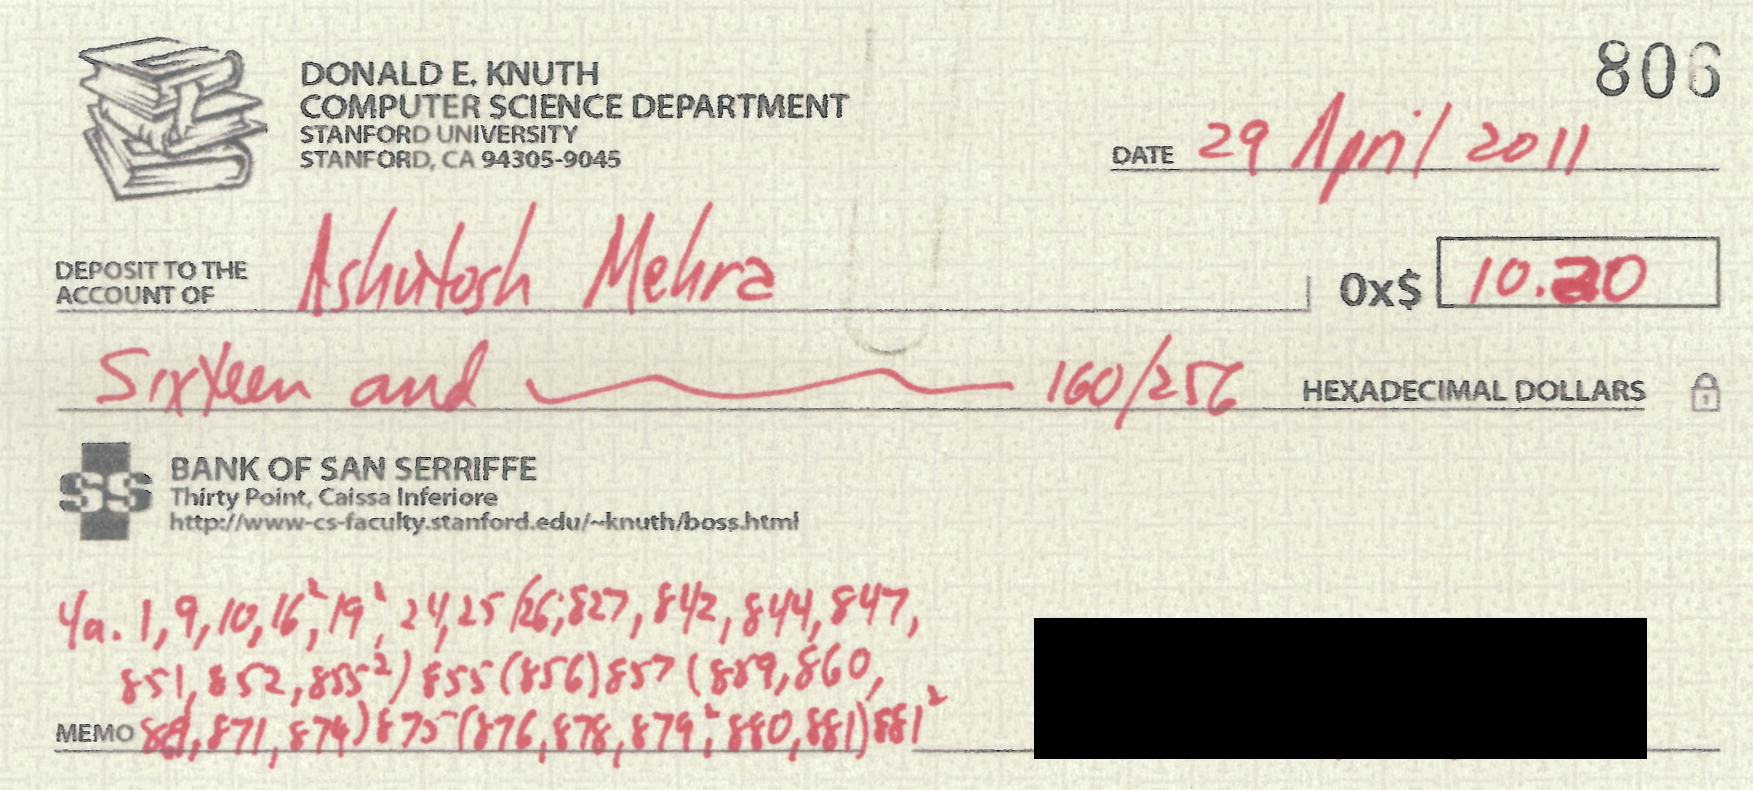 806
DONALD E. KNUTH
COMPUTER SCIENCE DEPARTMENT
STANFORD UNIVERSITY
STANFORD, CA 94305-9045
DATE 29 April 2011
DEPOSIT TO THE
ACCOUNT OF Ashutosh Mehra 0x$ 10.a0
Sixteen and 160/256 HEXADECIMAL DOLLARS
SS BANK OF SAN SERRIFFE
Thirty Point, Caissa Inferiore
http://www-cs-faculty.stanford.edu/~knuth/boss.html
4a. 1, 9, 10, 16², 19², 24, 25/26; 827, 842, 844, 847,
851, 852, 855²) 855 (856) 857 (859, 860,
MEMO 871, 874) 875 (876, 878, 879², 880, 881) 881²